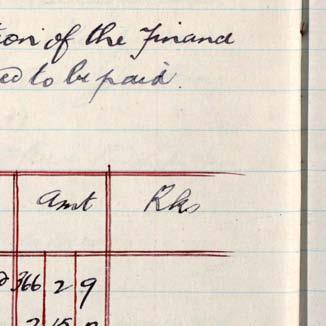 tion of the Financ
ed to be paid.
Amt Rks
366 2 9